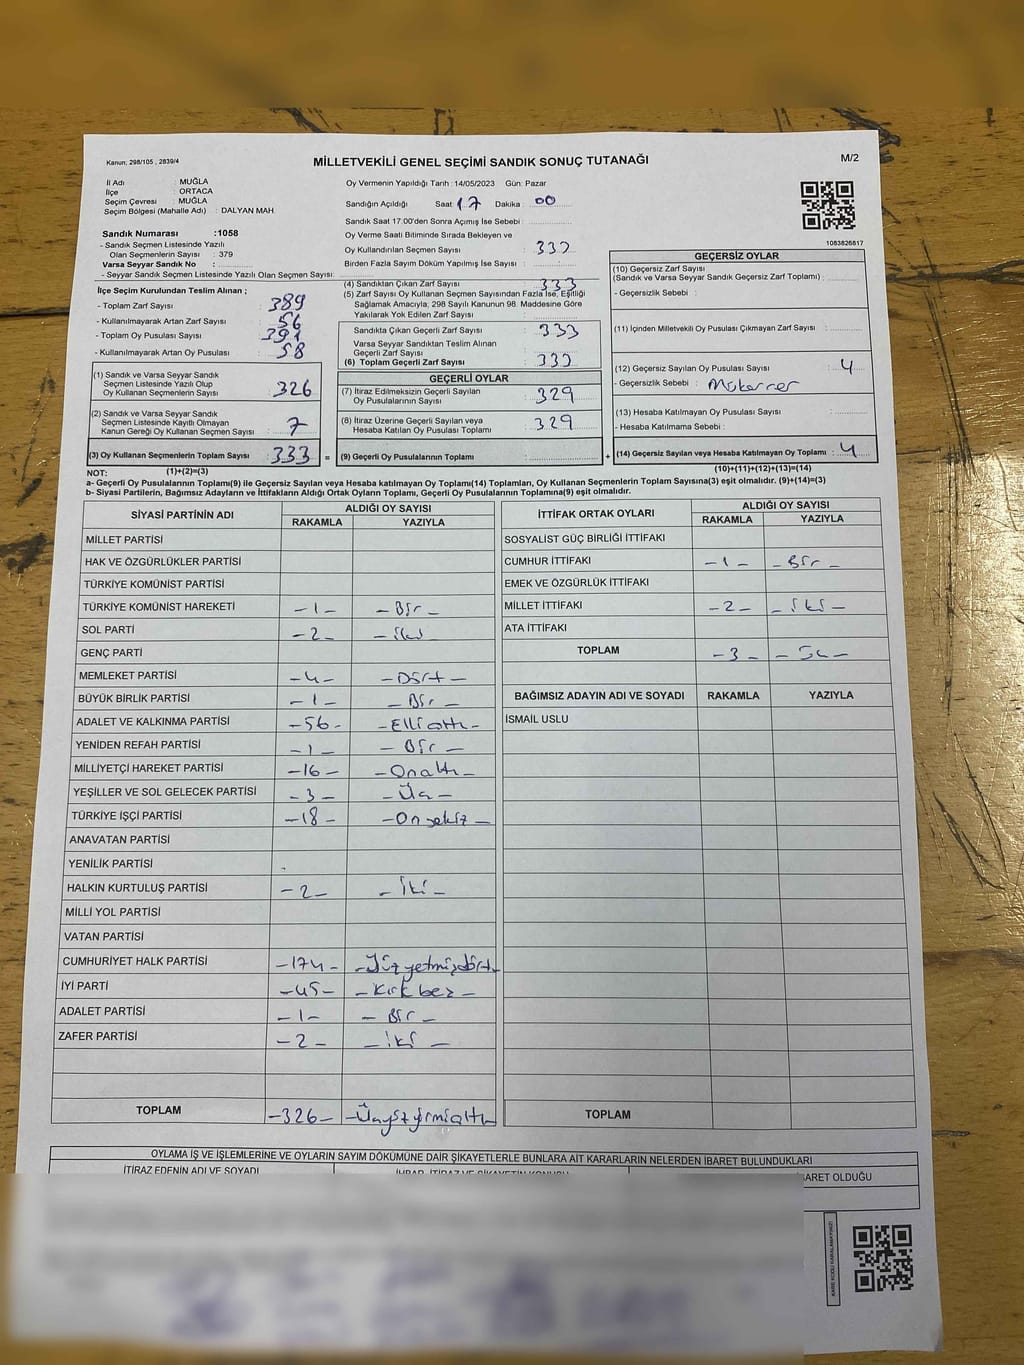 Kanun, 298/105 , 2839/4
MİLLETVEKİLİ GENEL SEÇİMİ SANDIK SONUÇ TUTANAĞI
M/2
İl Adı : MUĞLA
İlçe : ORTACA
Seçim Çevresi : MUĞLA
Seçim Bölgesi (Mahalle Adı) : DALYAN MAH.
Sandık Numarası :1058
- Sandık Seçmen Listesinde Yazılı
Olan Seçmenlerin Sayısı : 379
Varsa Seyyar Sandık No :
- Seyyar Sandık Seçmen Listesinde Yazılı Olan Seçmen Sayısı:
Oy Vermenin Yapıldığı Tarih : 14/05/2023 Gün: Pazar
Sandığın Açıldığı Saat : 17 Dakika : 00
Sandık Saat 17.00'den Sonra Açımış İse Sebebi :
Oy Verme Saati Bitiminde Sırada Bekleyen ve
Oy Kullandırılan Seçmen Sayısı : 333
Birden Fazla Sayım Döküm Yapılmış İse Sayısı :
1083826817
İlçe Seçim Kurulundan Teslim Alınan ;
- Toplam Zarf Sayısı : 389
- Kullanılmayarak Artan Zarf Sayısı : 56
- Toplam Oy Pusulası Sayısı : 391
- Kullanılmayarak Artan Oy Pusulası : 58
(1) Sandık ve Varsa Seyyar Sandık
Seçmen Listesinde Yazılı Olup
Oy Kullanan Seçmenlerin Sayısı : 326
(2) Sandık ve Varsa Seyyar Sandık
Seçmen Listesinde Kayıtlı Olmayan
Kanun Gereği Oy Kullanan Seçmen Sayısı : 7
(3) Oy Kullanan Seçmenlerin Toplam Sayısı : 333 =
(4) Sandıktan Çıkan Zarf Sayısı : 333
(5) Zarf Sayısı Oy Kullanan Seçmen Sayısından Fazla İse, Eşitliği
Sağlamak Amacıyla, 298 Sayılı Kanunun 98. Maddesine Göre
Yakılarak Yok Edilen Zarf Sayısı :
Sandıkta Çıkan Geçerli Zarf Sayısı : 333
Varsa Seyyar Sandıktan Teslim Alınan
Geçerli Zarf Sayısı :
(6) Toplam Geçerli Zarf Sayısı : 333
GEÇERLİ OYLAR
(7) İtiraz Edilmeksizin Geçerli Sayılan
Oy Pusulalarının Sayısı : 329
(8) İtiraz Üzerine Geçerli Sayılan veya
Hesaba Katılan Oy Pusulası Toplamı : 329
(9) Geçerli Oy Pusulalarının Toplamı : +
GEÇERSİZ OYLAR
(10) Geçersiz Zarf Sayısı
(Sandık ve Varsa Seyyar Sandık Geçersiz Zarf Toplamı) :
- Geçersizlik Sebebi :
(11) İçinden Milletvekili Oy Pusulası Çıkmayan Zarf Sayısı :
(12) Geçersiz Sayılan Oy Pusulası Sayısı : 4
- Geçersizlik Sebebi : Mükerrer
(13) Hesaba Katılmayan Oy Pusulası Sayısı :
- Hesaba Katılmama Sebebi :
(14) Geçersiz Sayılan veya Hesaba Katılmayan Oy Toplamı : 4
NOT: (1)+(2)=(3) (10)+(11)+(12)+(13)=(14)
a- Geçerli Oy Pusulalarının Toplamı(9) ile Geçersiz Sayılan veya Hesaba katılmayan Oy Toplamı(14) Toplamları, Oy Kullanan Seçmenlerin Toplam Sayısına(3) eşit olmalıdır. (9)+(14)=(3)
b- Siyasi Partilerin, Bağımsız Adayların ve İttifakların Aldığı Ortak Oyların Toplamı, Geçerli Oy Pusulalarının Toplamına(9) eşit olmalıdır.
SİYASİ PARTİNİN ADI ALDIĞI OY SAYISI
RAKAMLA YAZIYLA
MİLLET PARTİSİ
HAK VE ÖZGÜRLÜKLER PARTİSİ
TÜRKİYE KOMÜNİST PARTİSİ
TÜRKİYE KOMÜNİST HAREKETİ -1- -Bir-
SOL PARTİ -2- -iki
GENÇ PARTİ
MEMLEKET PARTİSİ -4- -Dört-
BÜYÜK BİRLİK PARTİSİ -1- -Bir-
ADALET VE KALKINMA PARTİSİ -56- -Elli altı-
YENİDEN REFAH PARTİSİ -1- -Bir-
MİLLİYETÇİ HAREKET PARTİSİ -16- -Onaltı-
YEŞİLLER VE SOL GELECEK PARTİSİ -3- -Üç-
TÜRKİYE İŞÇİ PARTİSİ -18- -Onsekiz-
ANAVATAN PARTİSİ
YENİLİK PARTİSİ
HALKIN KURTULUŞ PARTİSİ -2- -İki-
MİLLİ YOL PARTİSİ
VATAN PARTİSİ
CUMHURİYET HALK PARTİSİ -174- -Yüzyetmişdört-
İYİ PARTİ -45- -Kırkbeş-
ADALET PARTİSİ -1- -Bir-
ZAFER PARTİSİ -2- -iki-
TOPLAM -326- -Üçyüzyirmialtı-
İTTİFAK ORTAK OYLARI ALDIĞI OY SAYISI
RAKAMLA YAZIYLA
SOSYALİST GÜÇ BİRLİĞİ İTTİFAKI
CUMHUR İTTİFAKI -1- -Bir-
EMEK VE ÖZGÜRLÜK İTTİFAKI
MİLLET İTTİFAKI -2- -iki-
ATA İTTİFAKI
TOPLAM -3- -Üç-
BAĞIMSIZ ADAYIN ADI VE SOYADI RAKAMLA YAZIYLA
İSMAİL USLU
TOPLAM
OYLAMA İŞ VE İŞLEMLERİNE VE OYLARIN SAYIM DÖKÜMÜNE DAİR ŞİKAYETLERLE BUNLARA AİT KARARLARIN NELERDEN İBARET BULUNDUKLARI
İTİRAZ EDENİN ADI VE SOYADI
İBARET OLDUĞU